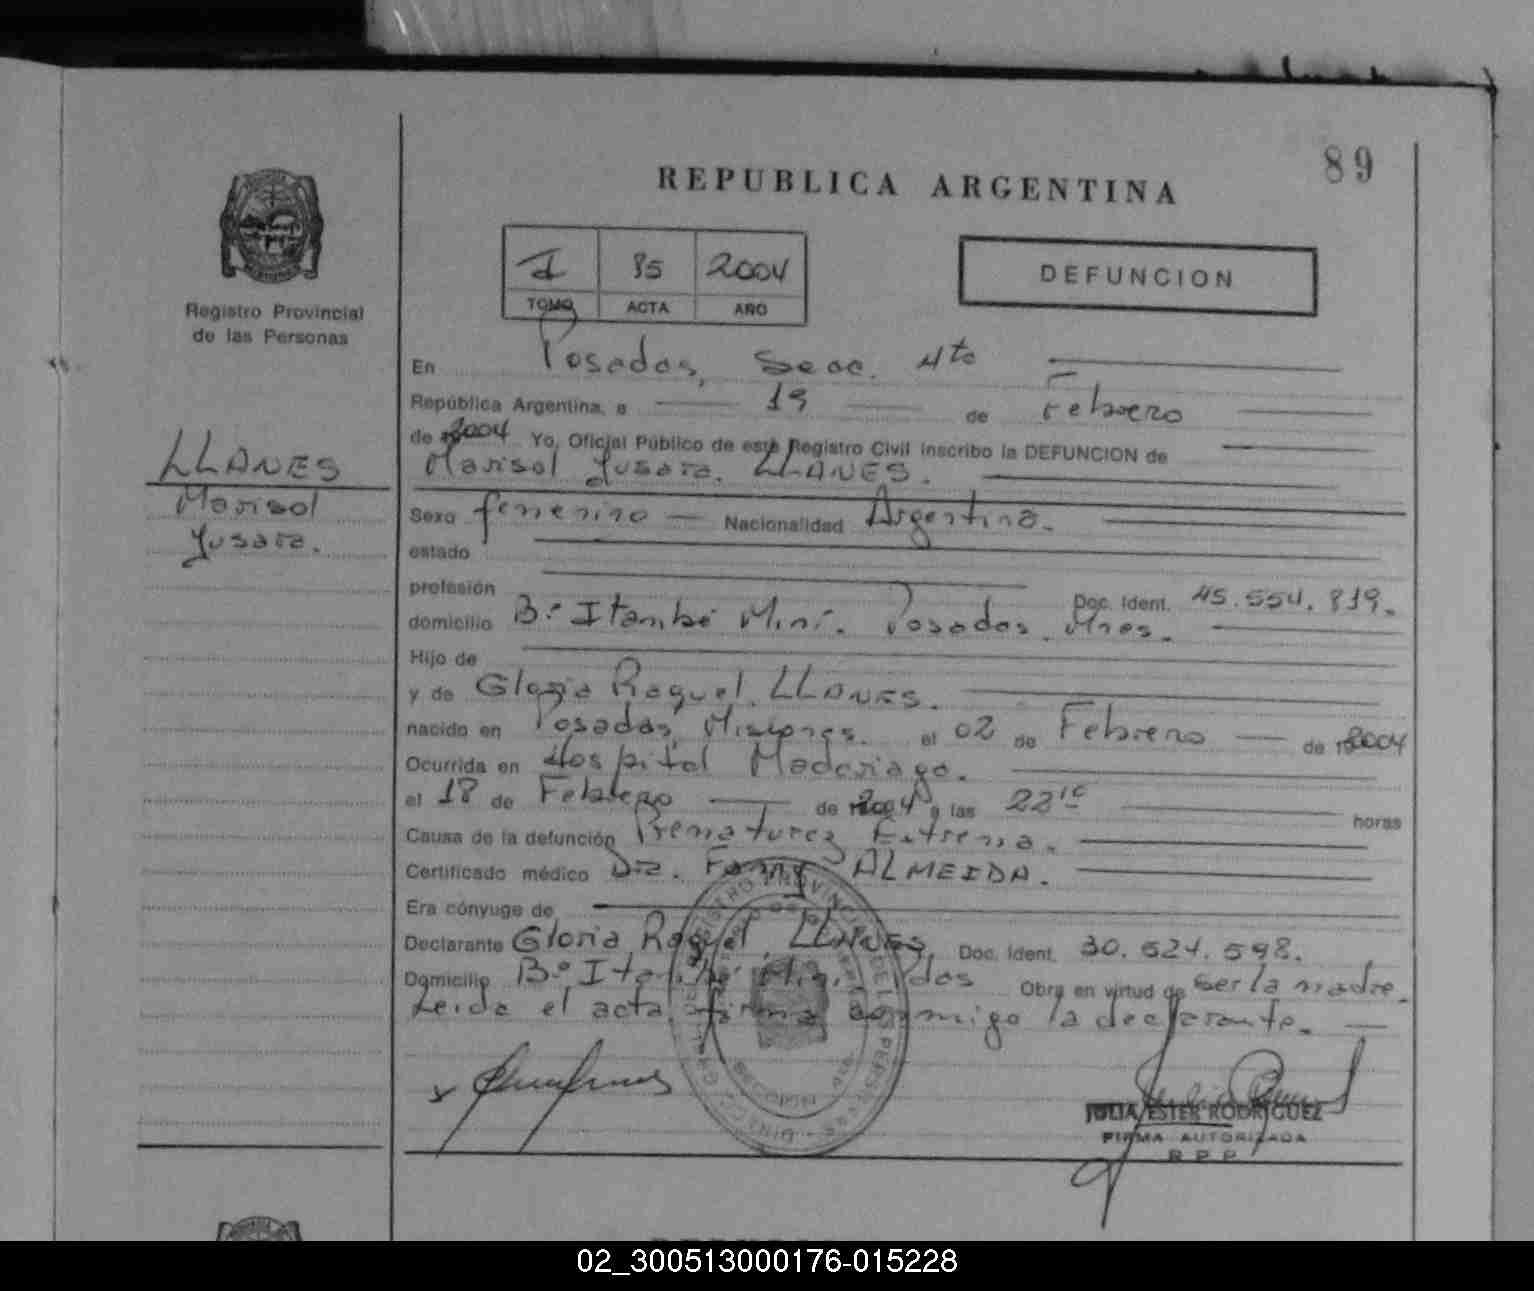 89
REPUBLICA ARGENTINA
I 85 2004
TOMO ACTA AÑO
DEFUNCION
Registro Provincial
de las Personas
LLANES
Marisol
Yusara.
En Posadas, Secc. 4ta
República Argentina, a 19 de Febrero
de 2004 Yo, Oficial Público de este Registro Civil inscribo la DEFUNCION de
Marisol Yusara. LLANES.
Sexo femenino — Nacionalidad Argentina.
estado
profesión Doc. Ident. 45.554.819.
domicilio B.º Itambé Miní. Posadas. Mnes.
Hijo de
y de Gloria Raquel LLANES.
nacido en Posadas, Misiones. el 02 de Febrero — de 2004
Ocurrida en Hospital Madariaga.
el 18 de Febrero — de 2004 a las 22 10 horas
Causa de la defunción Prematurez Extrema.
Certificado médico Dra. Fanny ALMEIDA.
Era cónyuge de
Declarante Gloria Raquel LLANES, Doc. Ident. 30.524.598.
Domicilio B.º Itambé Mini. Pdas Obra en virtud de ser la madre.
Leida el acta, firma conmigo la declarante. —
x
JULIA ESTER RODRIGUEZ
FIRMA AUTORIZADA
R P P
02_300513000176-015228